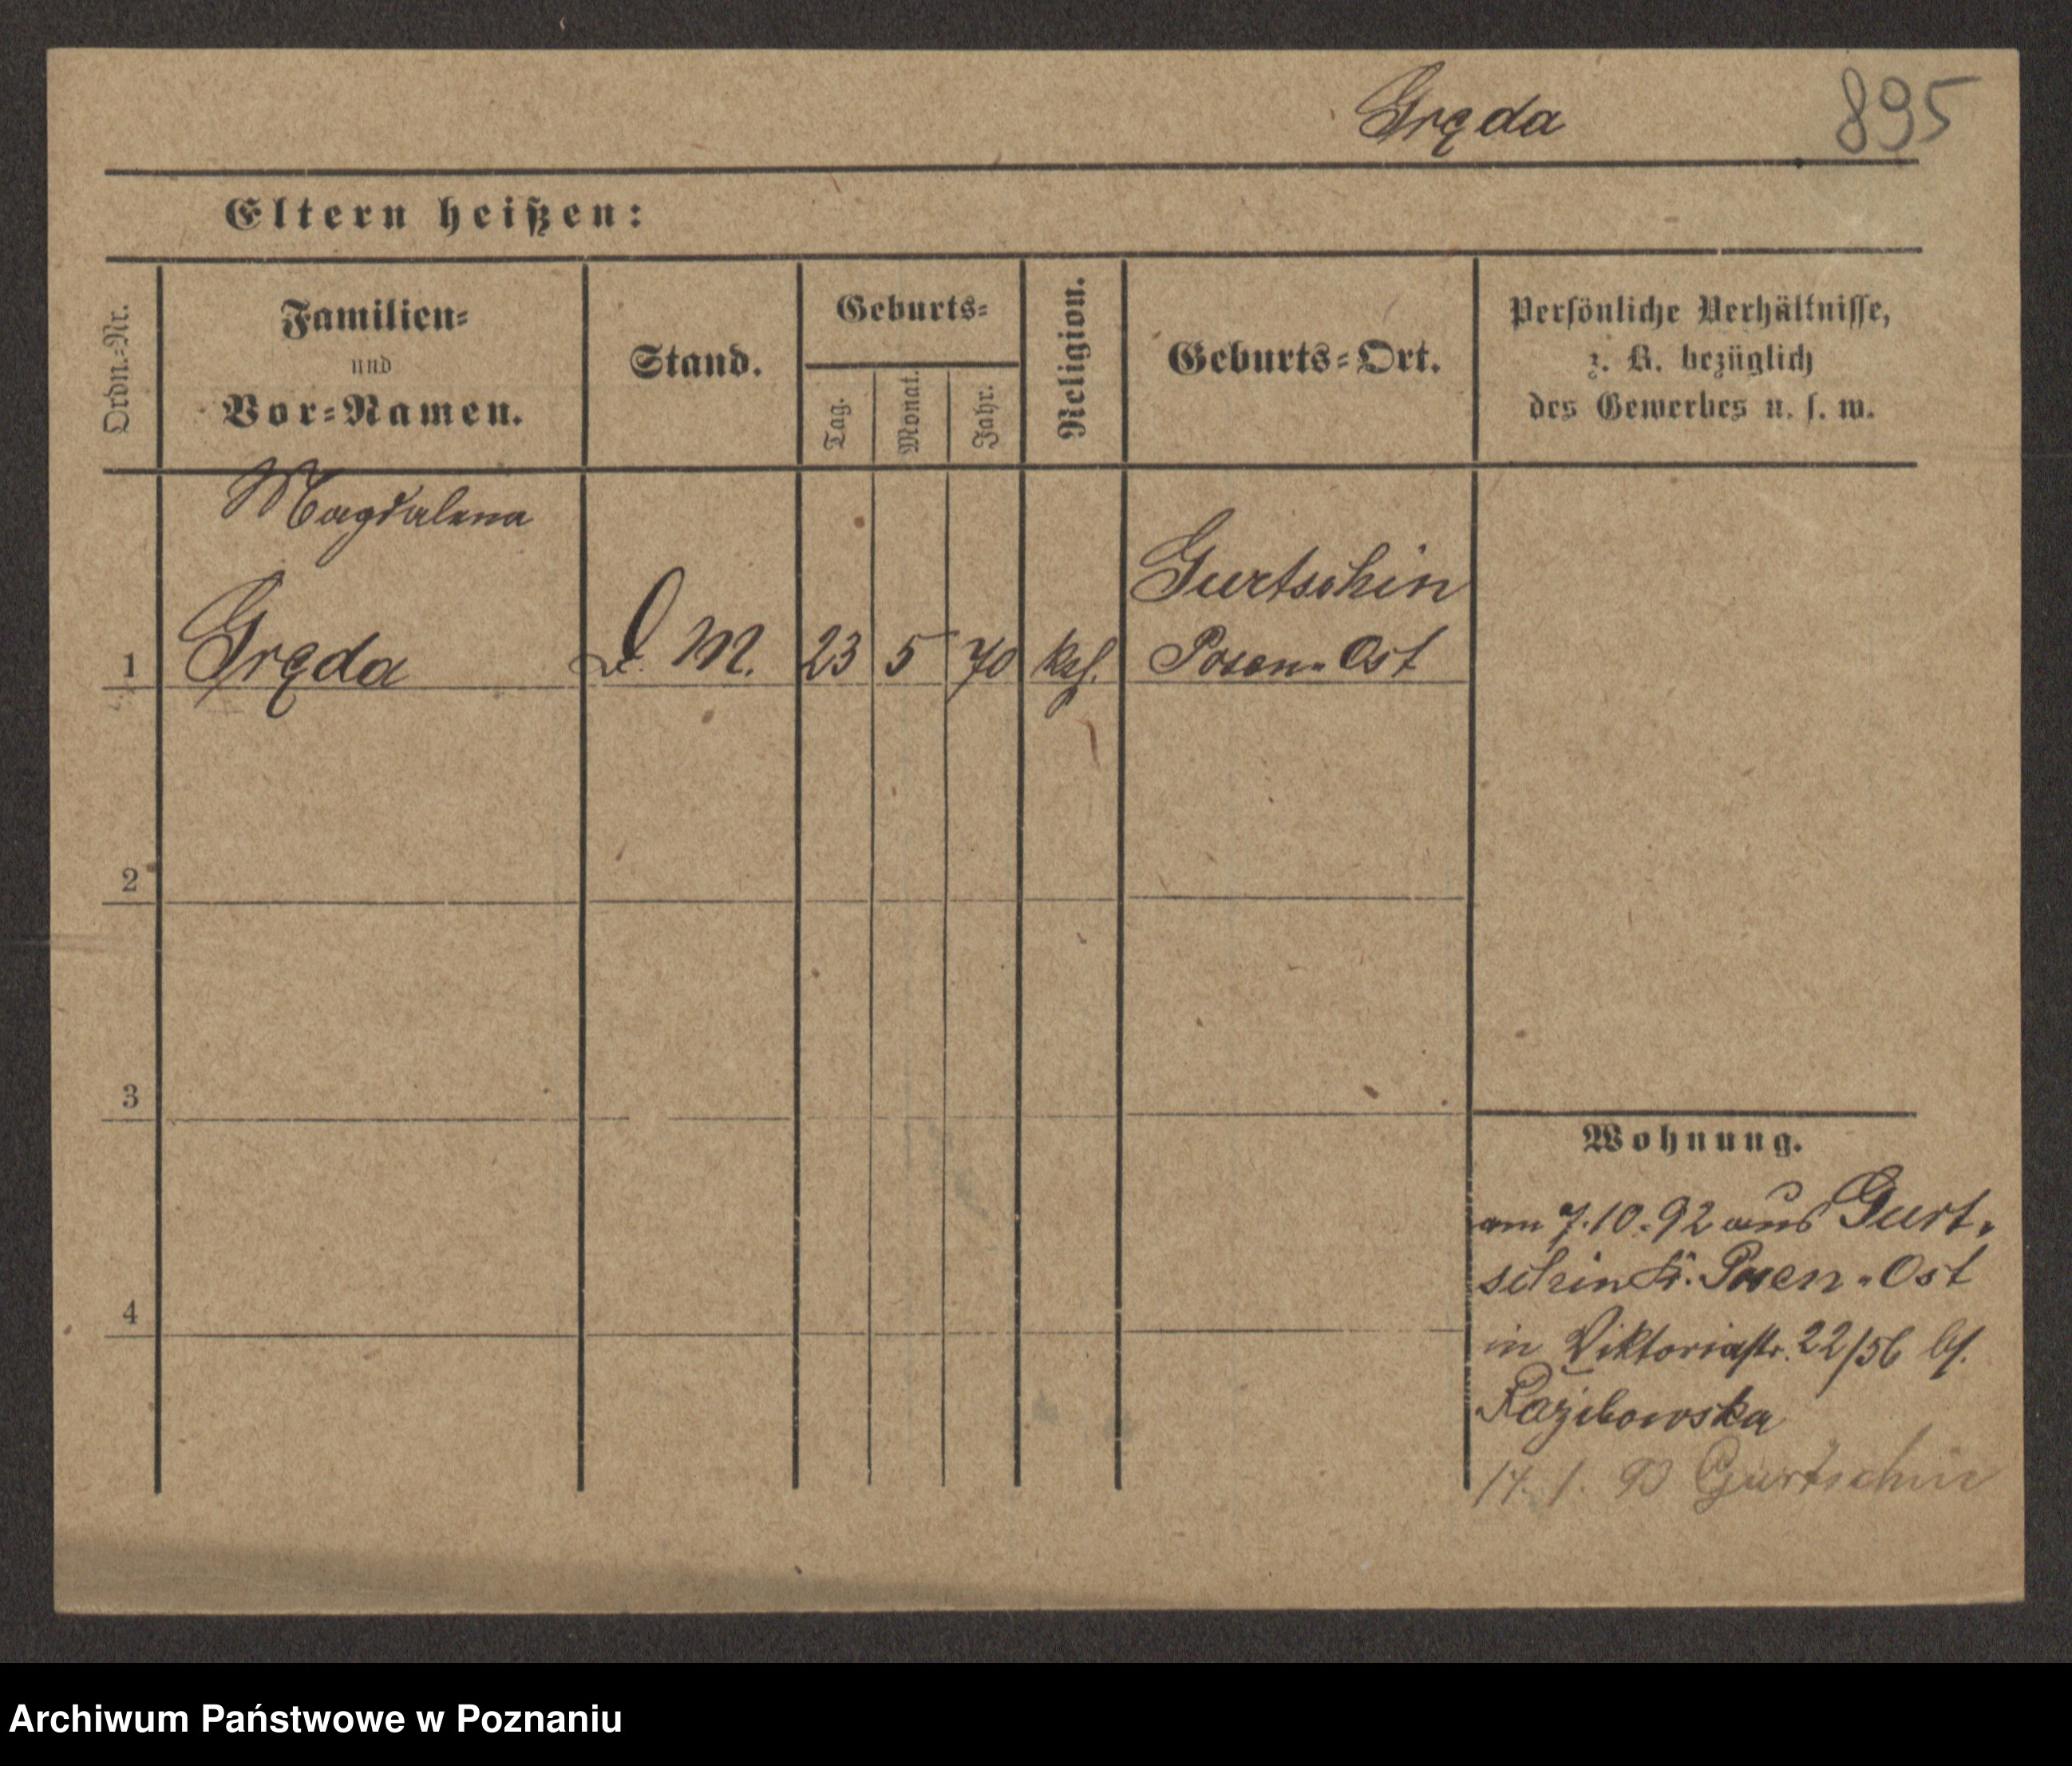 Gręda 895
Eltern heißen:
Ordn.-Nr.
Familien-
und
Vor-Namen.
Stand.
Geburts-
Tag.
Monat.
Jahr.
Religion.
Geburts-Ort.
Persönliche Verhältnisse,
z. B. bezüglich
des Gewerbes u. s. w.
Magdalena
Gurtschin
1 Gręda D. M. 23 5 70 kath. Posen-Ost
2
3
4
Wohnung.
am 7.10.92 aus Gurt-
schin Kr. Posen-Ost
in Viktoriastr. 22/56 bei
14. 1. 93 Gurtschin
Archiwum Państwowe w Poznaniu